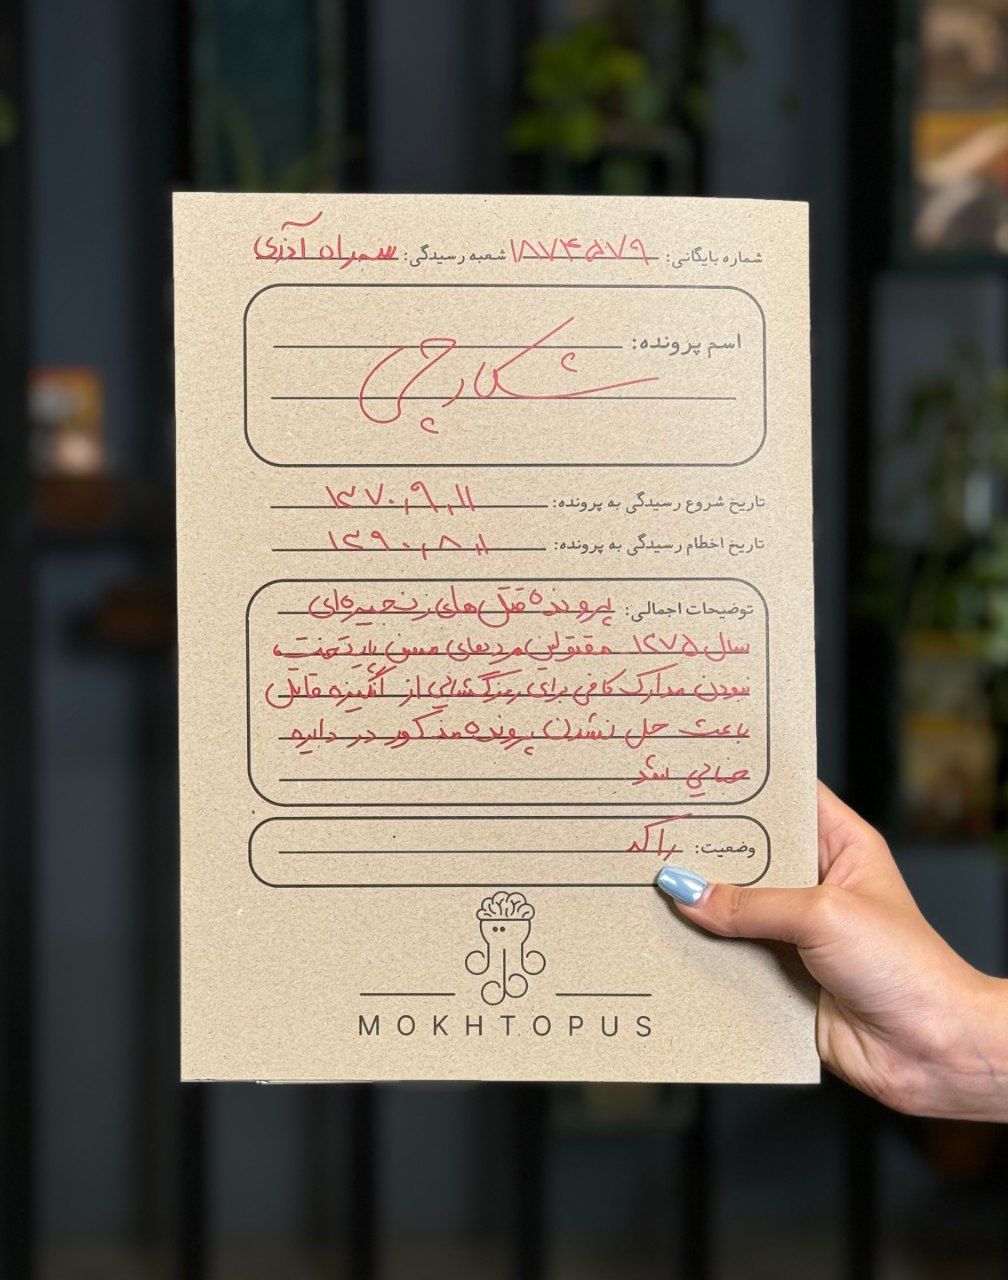 شماره بایگانی: ۱۸۷۴۵۷۹ شعبه رسیدگی: سهراه آذری
اسم پرونده:
شکارچی
تاریخ شروع رسیدگی به پرونده: ۱۳۷۰,۹,۱۱
تاریخ اختام رسیدگی به پرونده: ۱۳۹۰,۸,۱
توضیحات اجمالی: پرونده قتل های زنجیره‌ای
سال ۱۳۷۵ مقتولین مردهای مسن پایتخت،
نبودن مدارک کافی برای رمزگشایی از انگیزه قاتل
باعث حل نشدن پرونده مذکور در دایره
جنایی شد
وضعیت: راکد
MOKHTOPUS